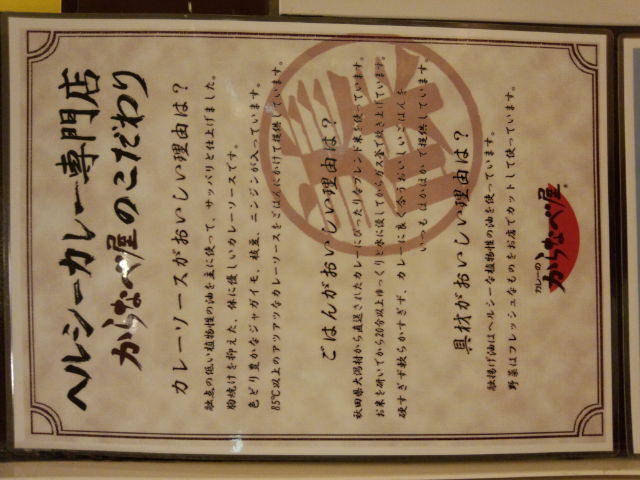 ヘルシーカレー専門店
からなべ屋のこだわり
カレーソースがおいしい理由は？
融点の低い植物性の油を主に使って、サッパリと仕上げました。
胸焼けを抑えた、体に優しいカレーソースです。
色どり豊かなジャガイモ、枝豆、ニンジンが入っています。
85℃以上のアツアツなカレーソースをごはんにかけて提供しています。
ごはんがおいしい理由は？
秋田県大潟村から直送されたカレーにぴったりなブレンド米を使っています。
お米を研いでから20分以上ゆっくりと水に浸してからガス釜で炊き上げています。
硬すぎず軟らかすぎず、カレーに良く合うおいしいごはんを
いつもほかほかで提供しています。
具材がおいしい理由は？
融揚げ油はヘルシーな植物性の油を使っています。
野菜はフレッシュなものをお店でカットして使っています。
カレーの
からなべ屋